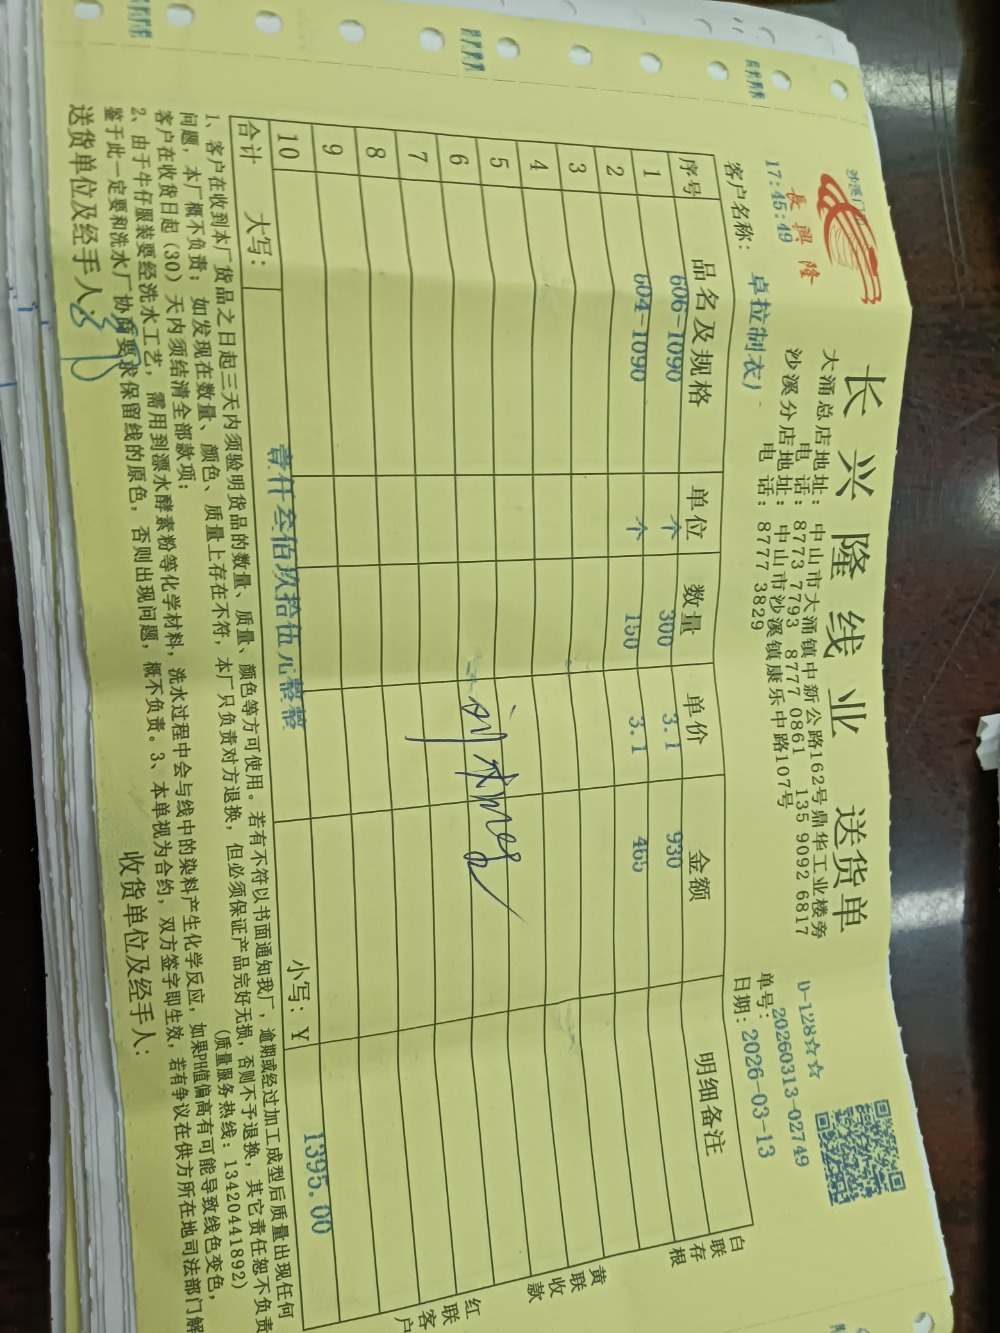 長興隆
17:45:49
长兴隆线业 送货单
大涌总店地址: 中山市大涌镇中新公路162号鼎华工业楼旁
电 话: 8773 7793 8777 0861 135 9092 6817
沙溪分店地址: 中山市沙溪镇康乐中路107号
电 话: 8777 3829
D-128☆☆
单号: 20260313-02749
日期: 2026-03-13
客户名称: 卓拉制衣厂
序号 品名及规格 单位 数量 单价 金额 明细备注
1 606-1090 个 300 3.1 930
2 604-1090 个 150 3.1 465
3
4
5
6
7
8
9
10
合计 大写: 壹仟叁佰玖拾伍元整整 小写: ¥ 1395.00
白联存根
黄联收款
红联客户
1、客户在收到本厂货品之日起三天内须验明货品的数量、质量、颜色等方可使用。若有不符以书面通知我厂,逾期或经过加工成型后质量出现任何
问题,本厂概不负责;如发现在数量、颜色、质量上存在不符,本厂只负责对方退换,但必须保证产品完好无损,否则不予退换,其它责任恕不负责
客户在收货日起(30)天内须结清全部款项; (质量服务热线:13420441892)
2、由于牛仔服装要经洗水工艺,需用到漂水酵素粉等化学材料,洗水过程中会与线中的染料产生化学反应,如果PH值偏高有可能导致线色变色,
鉴于此一定要和洗水厂协商要求保留线的原色,否则出现问题,概不负责。3、本单视为合约,双方签字即生效,若有争议在供方所在地司法部门解
送货单位及经手人: 收货单位及经手人: